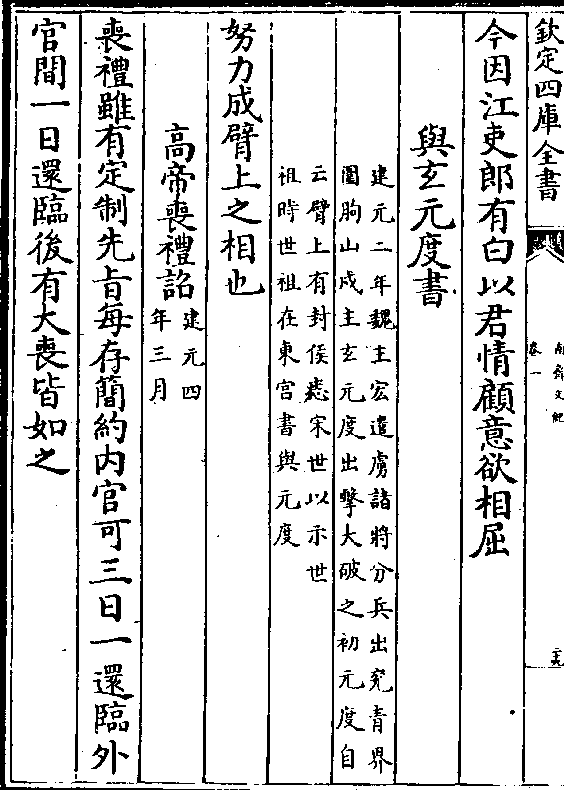 欽定四庫全書
南齊文紀
卷一
今因江吏郎有白以君情顧意欲相屈
與玄元度書
建元二年魏主宏遣虜諸將分兵出兖青界
圍朐山戍主玄元度出擊大破之初元度自
云臂上有封侯誌宋世以示世
祖時世祖在東宮書與元度
努力成臂上之相也
高帝喪禮詔
建元四
年三月
喪禮雖有定制先旨每存簡約内官可三日一還臨外
官間一日還臨後有大喪皆如之